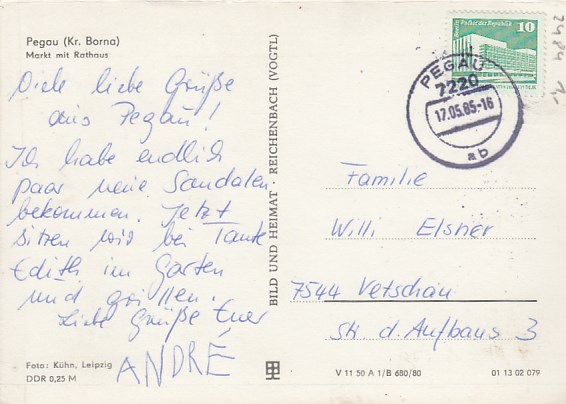 Pegau (Kr. Borna)
Markt mit Rathaus
Viele liebe Grüße
aus Pegau!
Ich habe endlich
paar neue Sandalen
bekommen. Jetzt
sitzen wir bei Tante
Edith im Garten
und grillen.
Liebe Grüße Euer
ANDRÉ
Foto: Kühn, Leipzig
DDR 0,25 M
BILD UND HEIMAT · REICHENBACH (VOGTL)
10
PEGAU
7220
17.05.85-16
ab
2484
1,-
Familie
Willi Elsner
7544 Vetschau
Str. d. Aufbaus 3
V 11 50 A 1/B 680/80
01 13 02 079